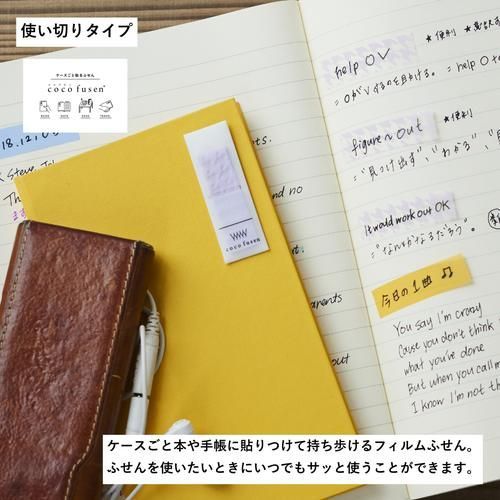 使い切りタイプ
ケースごと貼るふせん
coco fusen
18.12.0
Steve
and no
out
coco fusen
help O V
★便利
= OがVするのを助ける。 = help O to
figure ~ out
★便利
= "見つけ出す", "わかる",
It would work out OK
= "なんとかなるだろう"。
今日の1曲 ♫
You say I'm crazy
Cause you don't think
what you've done
But when you call me
I know I'm not th
ケースごと本や手帳に貼りつけて持ち歩けるフィルムふせん。
ふせんを使いたいときにいつでもサッと使うことができます。